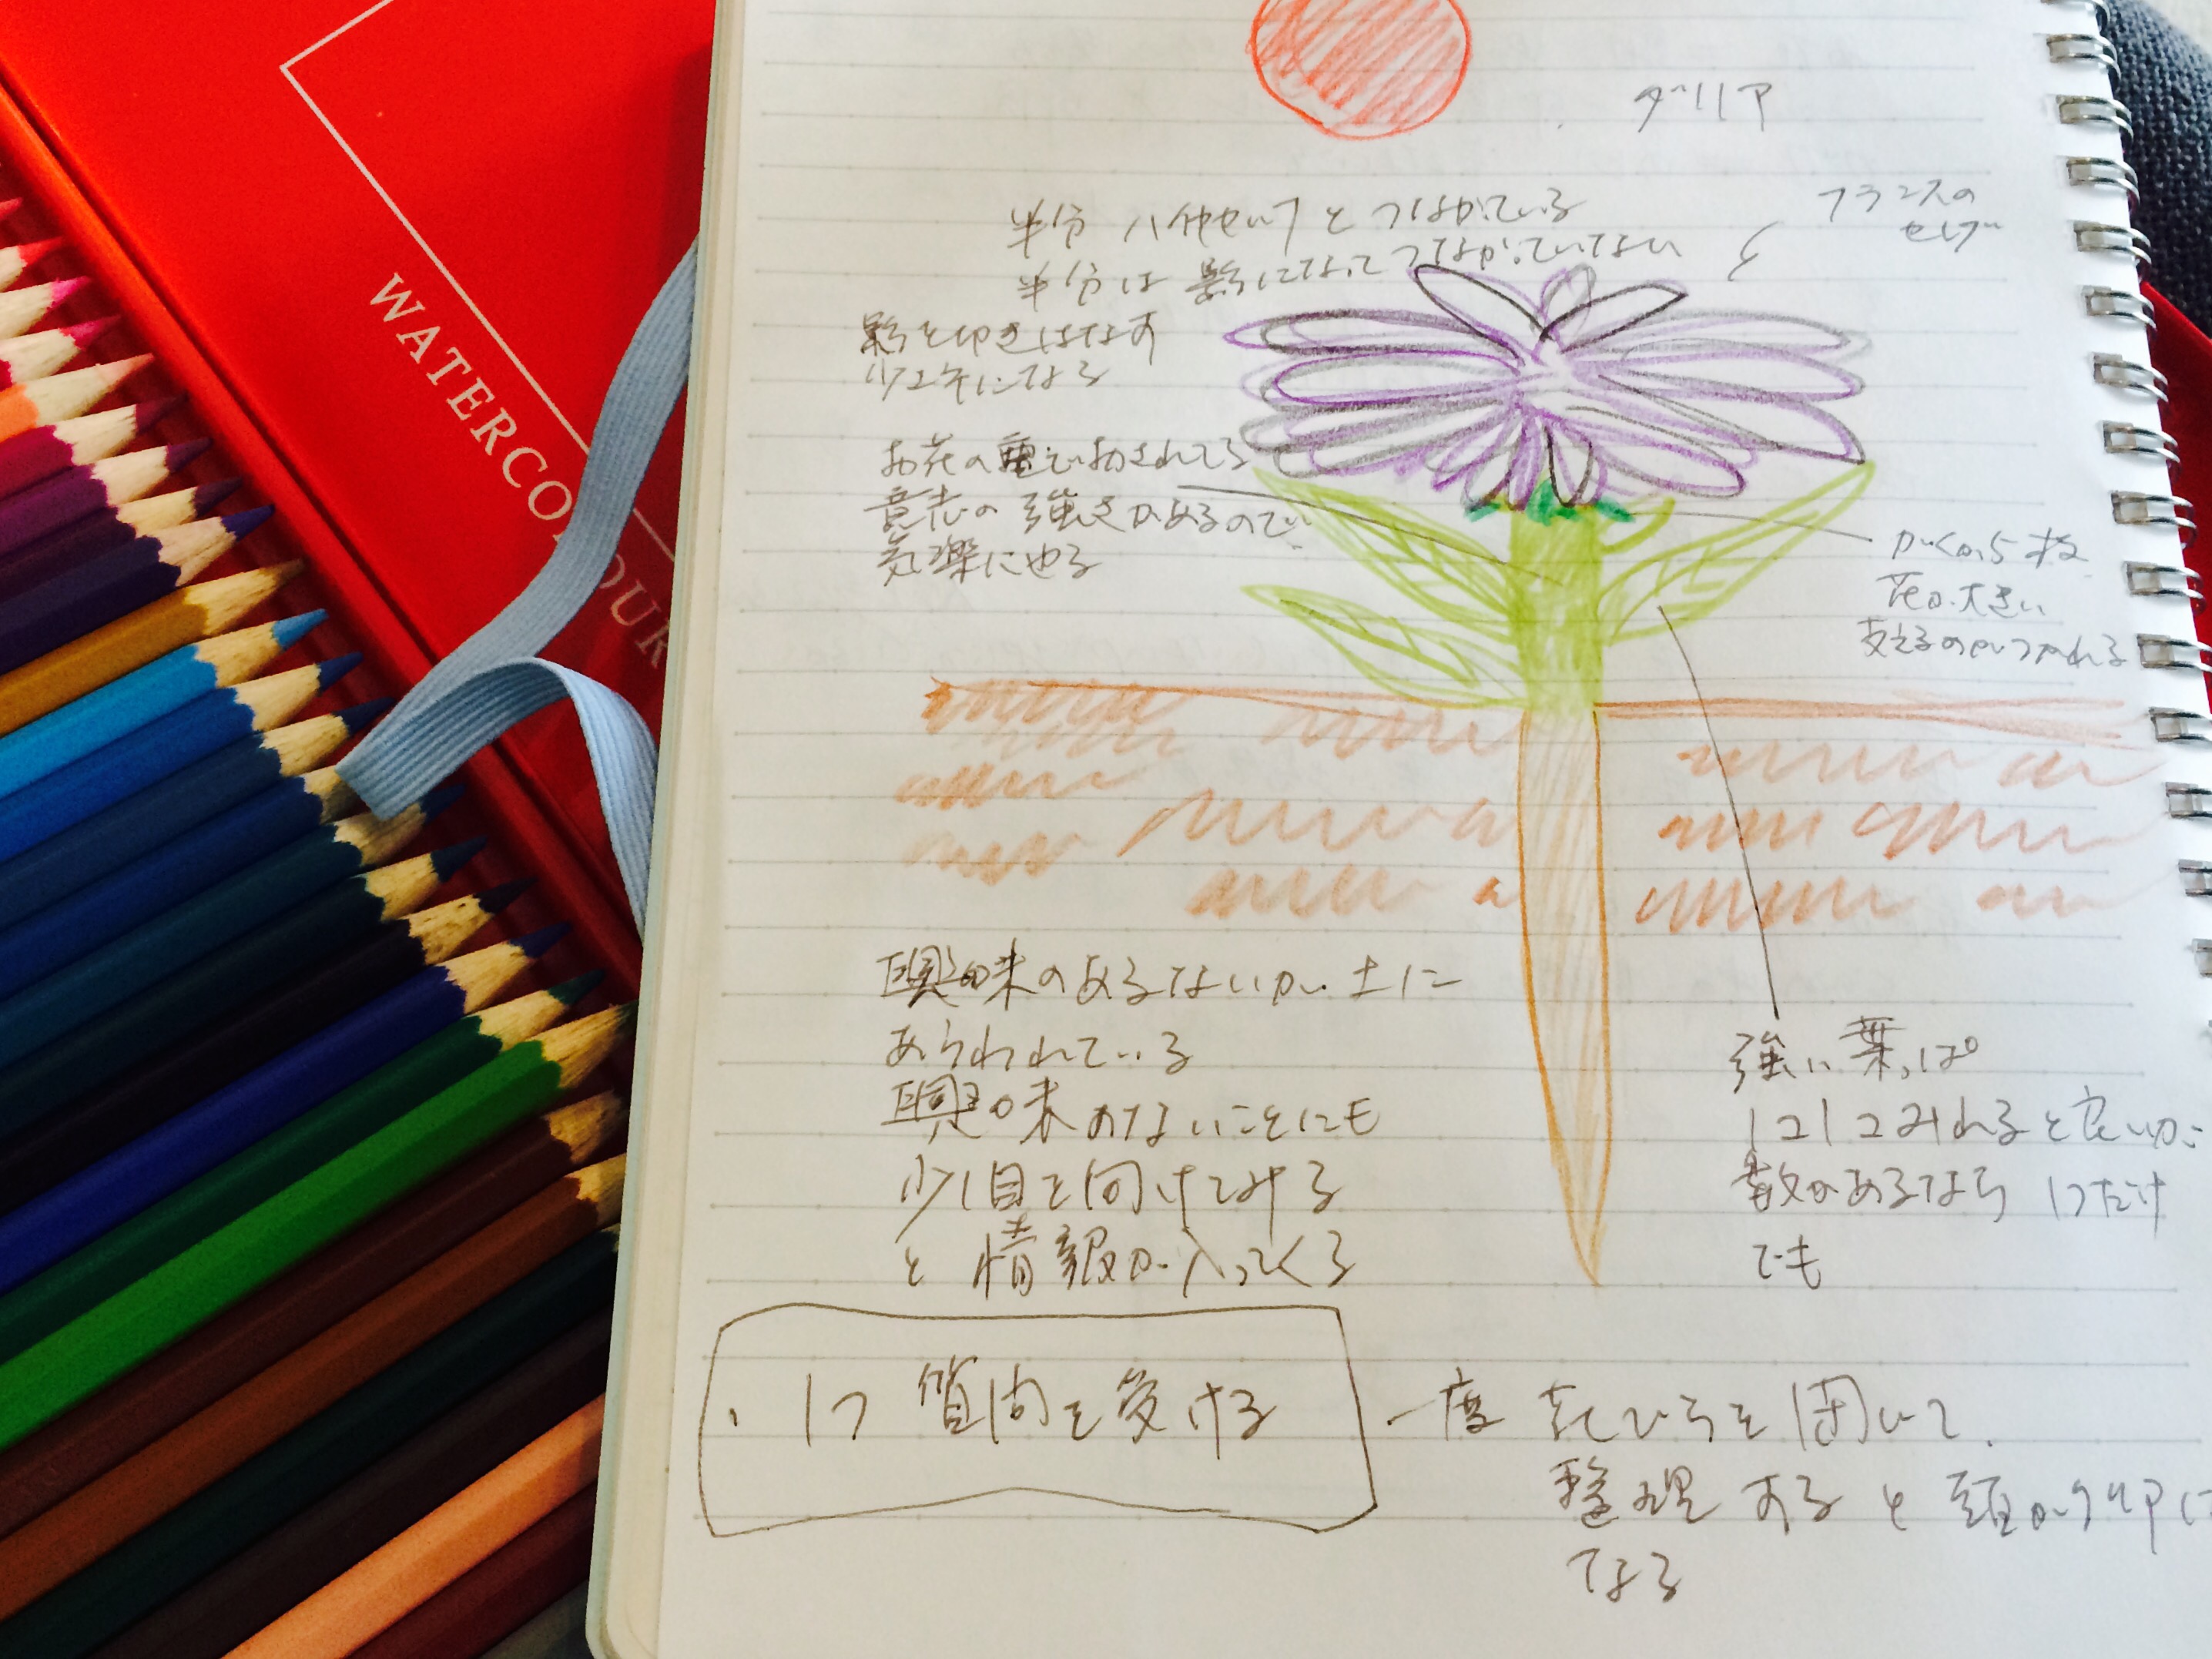 WATERCOLOUR
ダリア
フランスの
セレブ
半分 ハイヤセルフと つながっている
半分は 影になって つながっていない
影を叩きはなす
少エネになる
お花の重でおされてる
意志の 強さがあるので
気楽にやる
がくが5枚
花が大きい
支えるのがつかれる
興味のあるないが 土に
あらわれている
興味のないことにも
少し目を向けてみる
と 情報が入ってくる
強い葉っぱ
1コ1コみれると良いが
数があるなら 1つだけ
でも
・1つ 質問を受ける
一度 花びらを閉じて、
整理すると 頭がクリアに
なる